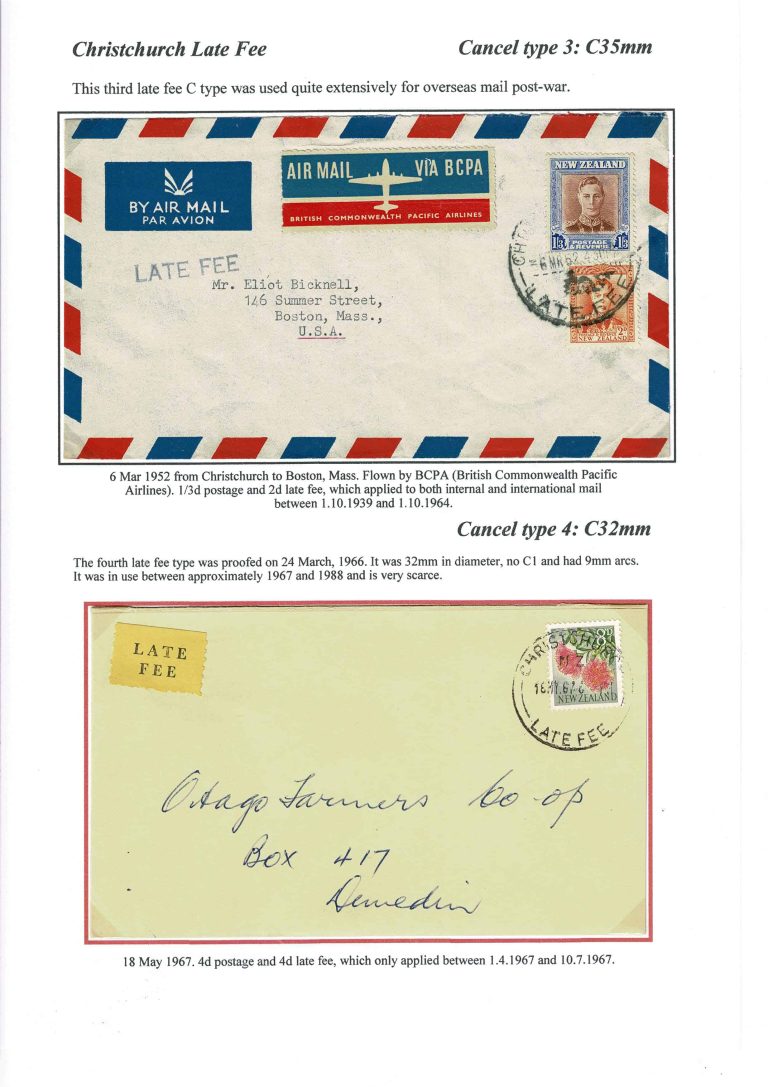 Christchurch Late Fee
Cancel type 3: C35mm
This third late fee C type was used quite extensively for overseas mail post-war.
BY AIR MAIL
PAR AVION
AIR MAIL VIA BCPA
BRITISH COMMONWEALTH PACIFIC AIRLINES
NEW ZEALAND
1/3 POSTAGE & REVENUE 1/3
LATE FEE
LATE FEE
2d
NEW ZEALAND
Mr. Eliot Bicknell,
146 Summer Street,
Boston, Mass.,
U.S.A.
6 Mar 1952 from Christchurch to Boston, Mass. Flown by BCPA (British Commonwealth Pacific
Airlines). 1/3d postage and 2d late fee, which applied to both internal and international mail
between 1.10.1939 and 1.10.1964.
Cancel type 4: C32mm
The fourth late fee type was proofed on 24 March, 1966. It was 32mm in diameter, no C1 and had 9mm arcs.
It was in use between approximately 1967 and 1988 and is very scarce.
LATE
FEE
8d
NEW ZEALAND
CHRISTCHURCH
N.Z.
LATE FEE
Otago Farmers Co-op
Box 417
Dunedin
18 May 1967. 4d postage and 4d late fee, which only applied between 1.4.1967 and 10.7.1967.